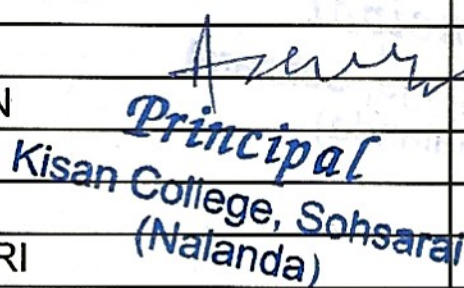 N
Principal
Kisan College, Sohsarai
(Nalanda)
RI